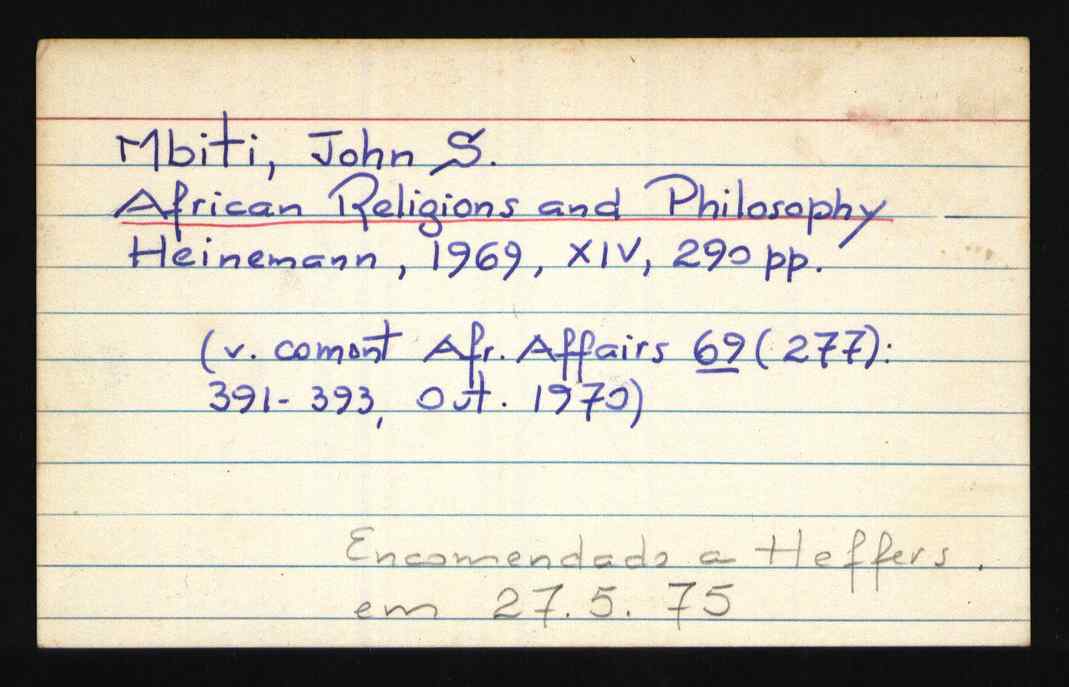 Mbiti, John S.
African Religions and Philosophy
Heinemann, 1969, XIV, 290 pp.
(v. coment Afr. Affairs 69 (277):
391-393, Out. 1970)
Encomendado a Heffers.
em 27.5.75